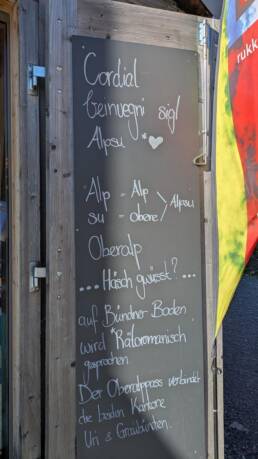 Cordial
beinvegni sigl
Alpsu *♥
Alp = Alp
su = obere > Alpsu
Oberalp
... Häsch gwüsst? ...
auf Bündner Boden
wird "Rätoromanisch
gesprochen.
Der Oberalppass verbindet
die beiden Kantone
Uri & Graubünden.
rukk